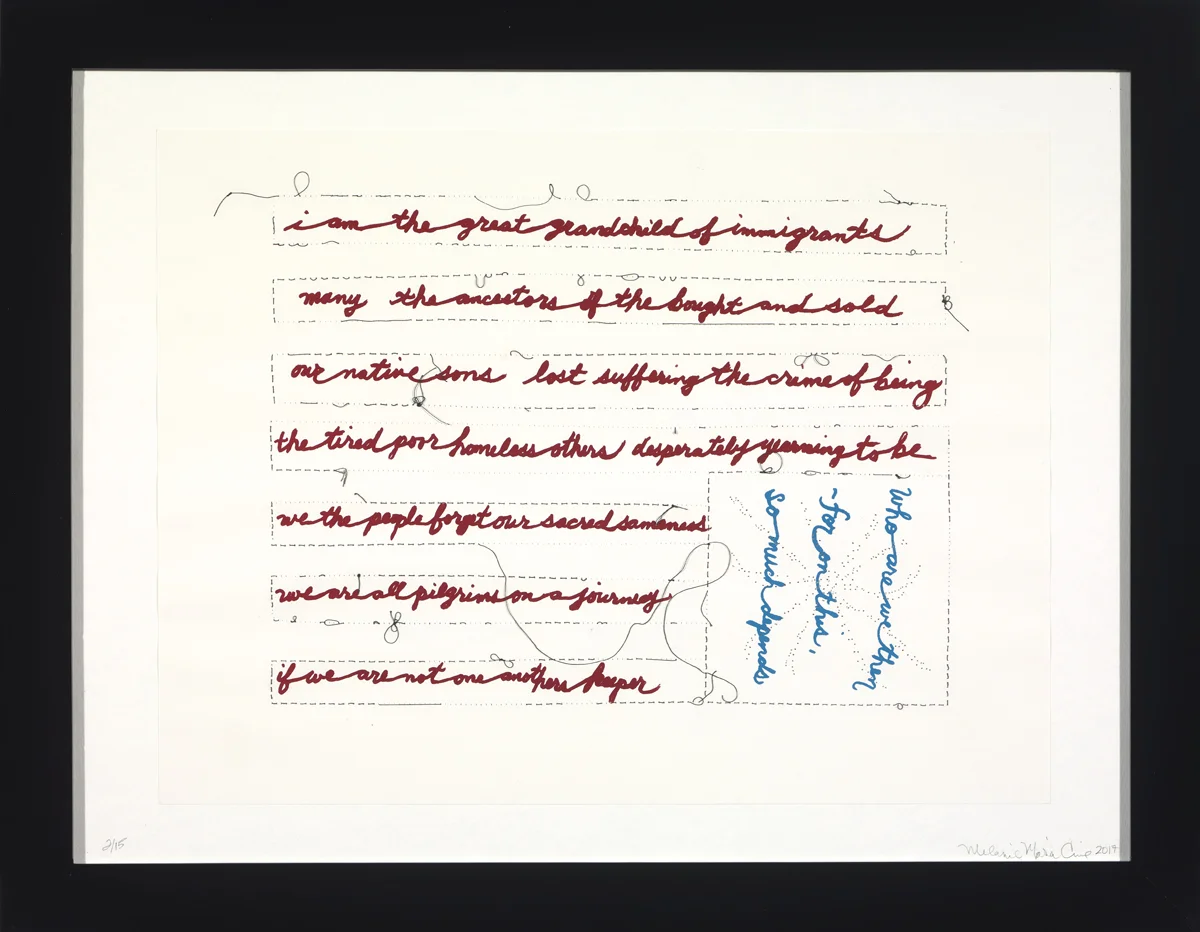 i am the great grandchild of immigrants
many the ancestors of the bought and sold
our native sons lost suffering the crime of being
the tired poor homeless others desperately yearning to be
we the people forget our sacred sameness
we are all pilgrims on a journey
if we are not one anothers keeper
who are we then
~for on this,
so much depends
2/15
2014